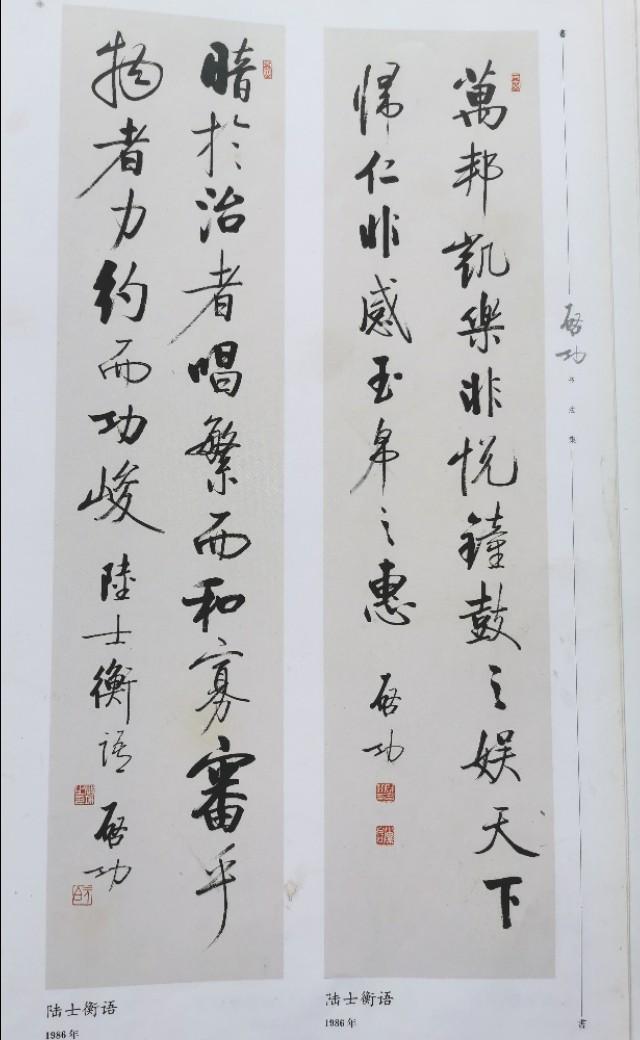 萬邦凱樂非悦鐘鼓之娱天下
歸仁非感玉帛之惠
啟功
陆士衡语
1986年
暗於治者唱繁而和寡審乎
物者力約而功峻
陸士衡語
啟功
陆士衡语
1986年
啟功
書